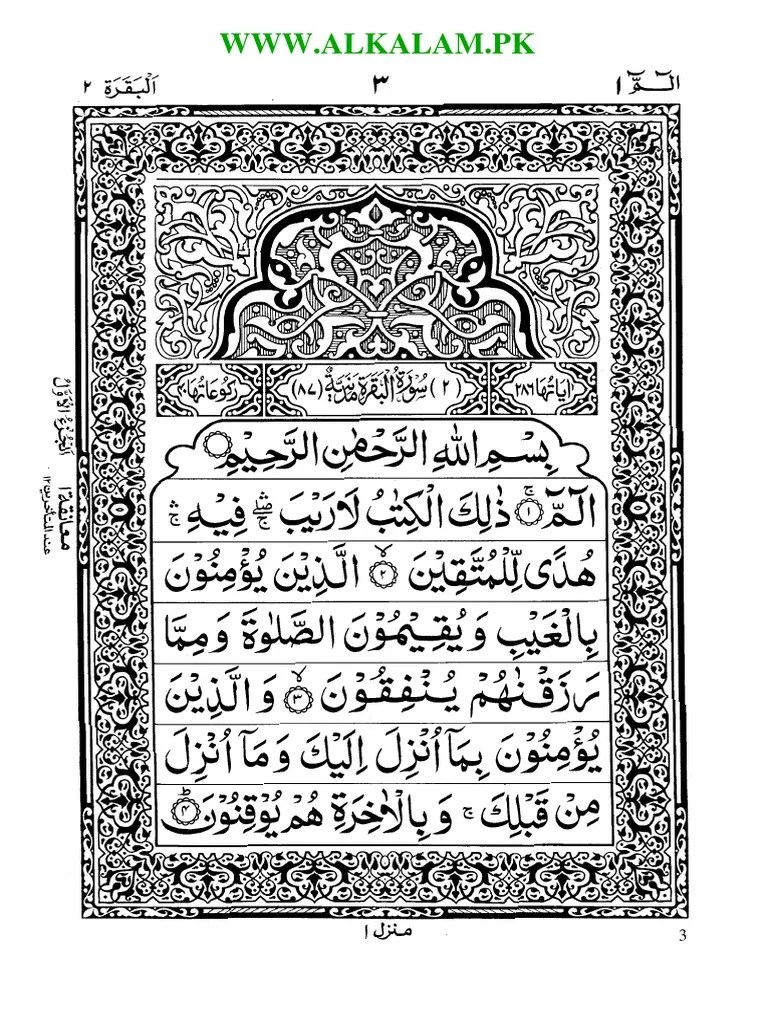 WWW.ALKALAM.PK
الٓمّٓ ۱
۳
اَلْبَقَرَة ۲
اٰیَاتُهَا ۲۸۶
(۲) سُوْرَةُ الْبَقَرَةِ مَدَنِیَّةٌ (۸۷)
رُكُوْعَاتُهَا ۴۰
بِسْمِ اللّٰهِ الرَّحْمٰنِ الرَّحِیْمِ
الٓمّٓ ۚ﴿۱﴾ ذٰلِكَ الْكِتٰبُ لَا رَیْبَ ۛۖۚ فِیْهِ ۛۚ
هُدًی لِّلْمُتَّقِیْنَ ۙ﴿۲﴾ الَّذِیْنَ یُؤْمِنُوْنَ
بِالْغَیْبِ وَ یُقِیْمُوْنَ الصَّلٰوةَ وَ مِمَّا
رَزَقْنٰهُمْ یُنْفِقُوْنَ ۙ﴿۳﴾ وَ الَّذِیْنَ
یُؤْمِنُوْنَ بِمَاۤ اُنْزِلَ اِلَیْكَ وَ مَاۤ اُنْزِلَ
مِنْ قَبْلِكَ ۚ وَ بِالْاٰخِرَةِ هُمْ یُوْقِنُوْنَ ؕ﴿۴﴾
اَلْجُزْءُ الْاَوَّلُ
معانقة ۱
عند المتأخرین ۱۲
منزل ۱
3